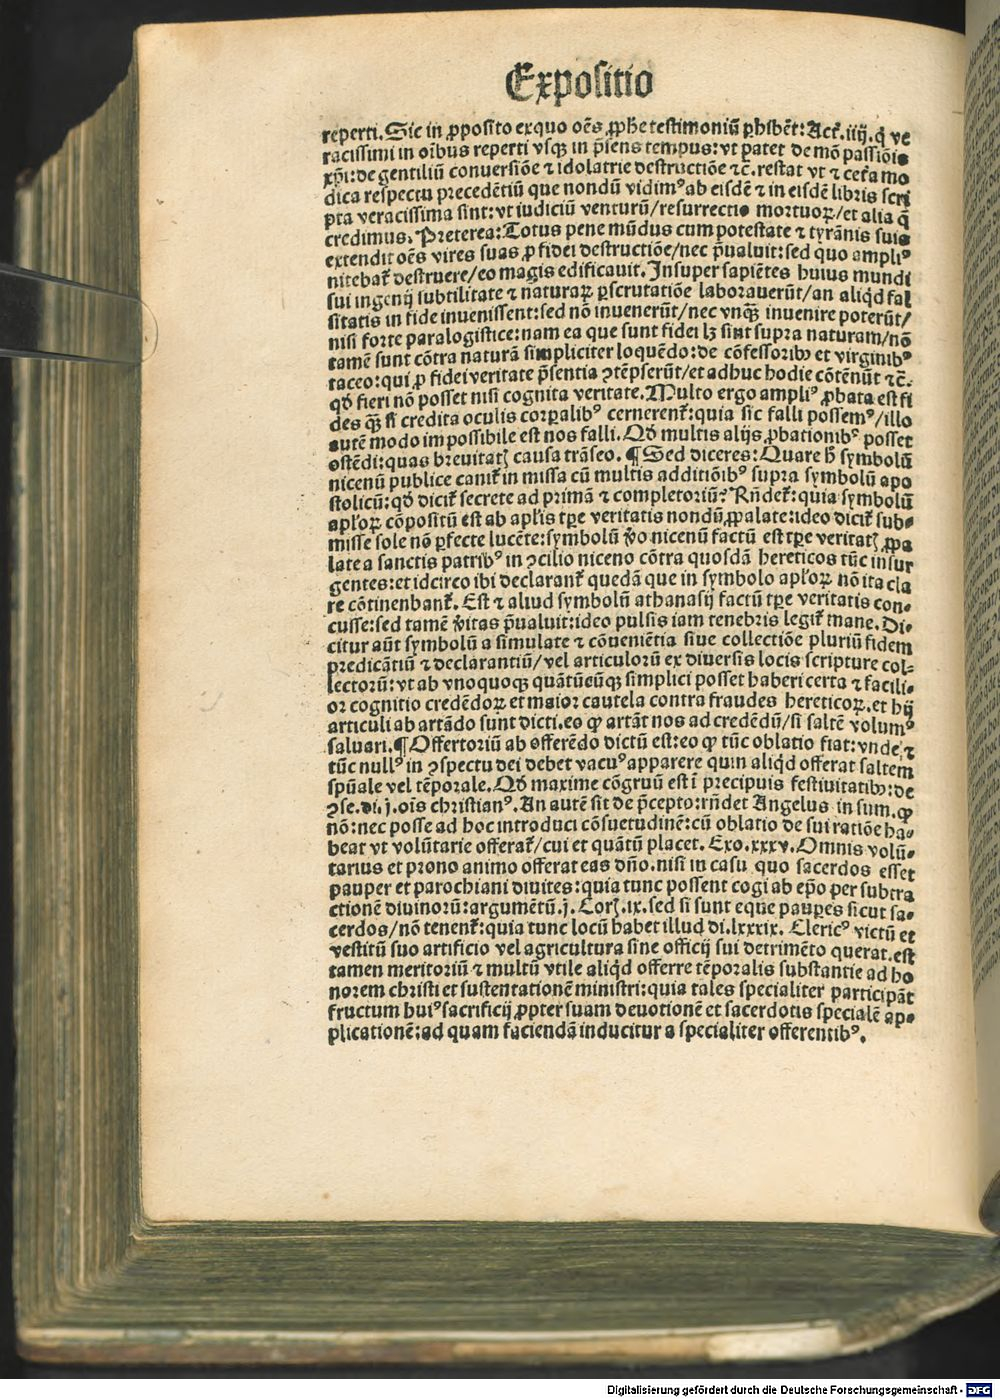 Expositio
reperti. Sic in ꝓposito exquo oēs ꝓphe testimoniū ꝑhibēt: Act̄. iiij. q̇ ve
racissimi in oībus reperti vsqꝫ in p̄sens tempus: vt patet de mō passiōis
xp̄i: de gentiliū conuersiōe ⁊ idolatrie destructiōe ⁊c̄. restat vt ⁊ cet̄a mo
dica respectu precedētiū que nondū vidimꝰ ab eisdē ⁊ in eisdē libris scri
pta veracissima sint: vt iudiciū venturū/resurrectio mortuoꝝ/et alia q̄
credimus. Preterea: Totus pene mūdus cum potestate ⁊ tyrānis suis
extendit oēs vires suas ꝓ fidei destructiōe/nec p̄ualuit: sed quo ampliꝰ
nitebat̄ destruere/eo magis edificauit. Insuper sapiētes huius mundi
sui ingenij subtilitate ⁊ naturaꝝ ꝑscrutatiōe laborauerūt/an aliqḋ fal
sitatis in fide inuenissent: sed nō inuenerūt/nec vnqꝫ inuenire poterūt/
nisi forte paralogistice: nam ea que sunt fidei lꝫ sint supra naturam/nō
tamē sunt cōtra naturā simpliciter loquēdo: de cōfessoribꝰ et virginibꝰ
taceo: qui ꝓ fidei veritate p̄sentia ꝯtēpserūt/et adhuc hodie cōtēnūt ⁊c̄.
qḋ fieri nō posset nisi cognita veritate. Multo ergo ampliꝰ ꝓbata est fi
des qꝫ si credita oculis corꝑalibꝰ cernerent̄: quia sic falli possemꝰ/illo
autē modo impossibile est nos falli. Qḋ multis alijs ꝓbationibꝰ posset
ostēdi: quas breuitatꝭ causa trāseo. ¶ Sed diceres: Quare h̄ symbolū
nicenū publice canit̄ in missa cū multis additiōibꝰ supra symbolū apo
stolicū: qḋ dicit̄ secrete ad primā ⁊ completoriū? Rn̄det̄: quia symbolū
apl'oꝝ cōpositū est ab apl'is tꝑe veritatis nondū ꝓpalate: ideo dicit̄ sub-
misse sole nō ꝑfecte lucēte: symbolū v̇o nicenū factū est tꝑe veritatꝭ ꝓpa
late a sanctis patribꝰ in ꝯcilio niceno cōtra quosdā hereticos tūc insur
gentes: et idcirco ibi declarant̄ quedā que in symbolo apl'oꝝ nō ita cla
re cōtinenbant̄. Est ⁊ aliud symbolū athanasij factū tꝑe veritatis con-
cusse: sed tamē v̇itas p̄ualuit: ideo pulsis iam tenebris legit̄ mane. Di-
citur aūt symbolū a simulate ⁊ cōueniētia siue collectiōe pluriū fidem
predicātiū ⁊ declarantiū/vel articulorū ex diuersis locis scripture col-
lectorū: vt ab vnoquoqꝫ quātūcūqꝫ simplici posset haberi certa ⁊ facili-
or cognitio credēdoꝝ et maior cautela contra fraudes hereticoꝝ. et hij
articuli ab artādo sunt dicti. eo ꝙ artāt nos ad credēdū/si saltē volumꝰ
saluari. ¶ Offertoriū ab offerēdo dictū est: eo ꝙ tūc oblatio fiat: vnde ⁊
tūc nullꝰ in ꝯspectu dei debet vacuꝰ apparere quin aliqḋ offerat saltem
spūale vel tēporale. Qḋ maxime cōgruū est ī precipuis festiuitatibꝰ: de
ꝯse. di. j. oīs christianꝰ. An autē sit de p̄cepto: rn̄det Angelus in sum. ꝙ
nō: nec posse ad hoc introduci cōsuetudinē: cū oblatio de sui ratiōe ha-
beat vt volūtarie offerat̄/cui et quātū placet. Exo. xxxv. Omnis volū-
tarius et prono animo offerat eas dn̄o. nisi in casu quo sacerdos esset
pauper et parochiani diuites: quia tunc possent cogi ab ep̄o per subtra
ctionē diuinorū: argumētū. j. Corꝭ. ix. sed si sunt eque pauꝑes sicut sa-
cerdos/nō tenent̄: quia tunc locū habet illud di. lxxxix. Clericꝰ victū et
vestitū suo artificio vel agricultura sine officij sui detrimēto querat. est
tamen meritoriū ⁊ multū vtile aliqḋ offerre tēporalis substantie ad ho
norem christi et sustentationē ministri: quia tales specialiter participāt
fructum huiꝰ sacrificij ꝓpter suam deuotionē et sacerdotis specialē ap-
plicationē: ad quam faciendā inducitur a specialiter offerentibꝰ.
Digitalisierung gefördert durch die Deutsche Forschungsgemeinschaft - DFG